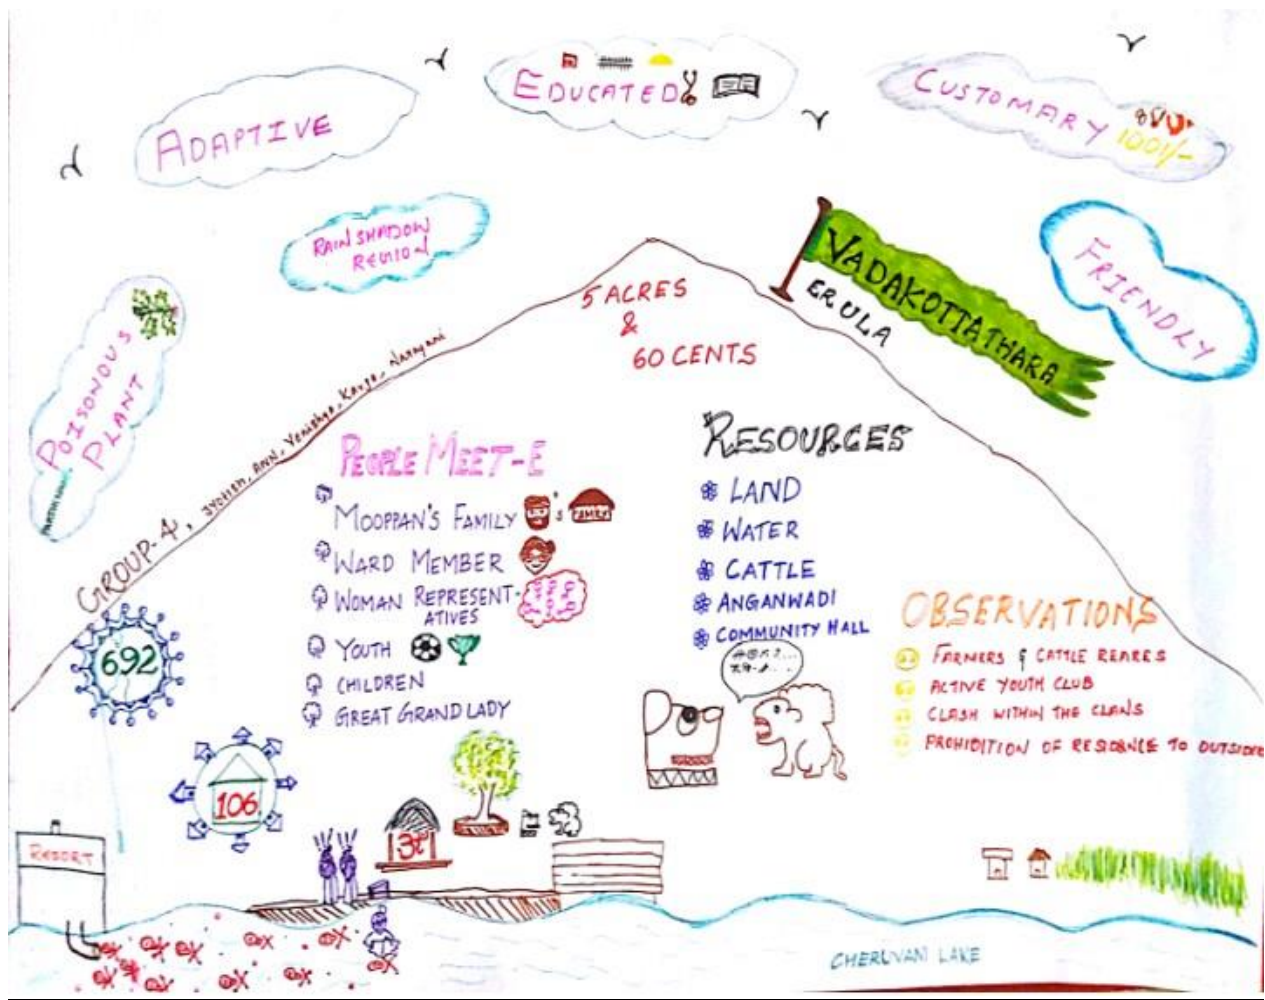 ADAPTIVE
EDUCATED
CUSTOMARY
1001/-
RAIN SHADOW
REGION
FRIENDLY
VADAKOTTATHARA
ERULA
POISONOUS
PLANT
5 ACRES
&
60 CENTS
GROUP-4, JYOTISH, ANN, Kavya, Narayani
PEOPLE MEET-E
MOOPPAN'S FAMILY 's FAMILY
WARD MEMBER
WOMAN REPRESENT-
ATIVES
YOUTH
CHILDREN
GREAT GRAND LADY
RESOURCES
LAND
WATER
CATTLE
ANGANWADI
COMMUNITY HALL
OBSERVATIONS
FARMERS & CATTLE REARES
ACTIVE YOUTH CLUB
CLASH WITHIN THE CLANS
PROHIDITION OF RESIDENCE TO OUTSIDER
692
106
RESORT
CHERUVANI LAKE